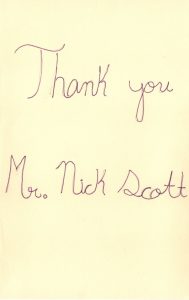 Thank you
Mr. Nick Scott